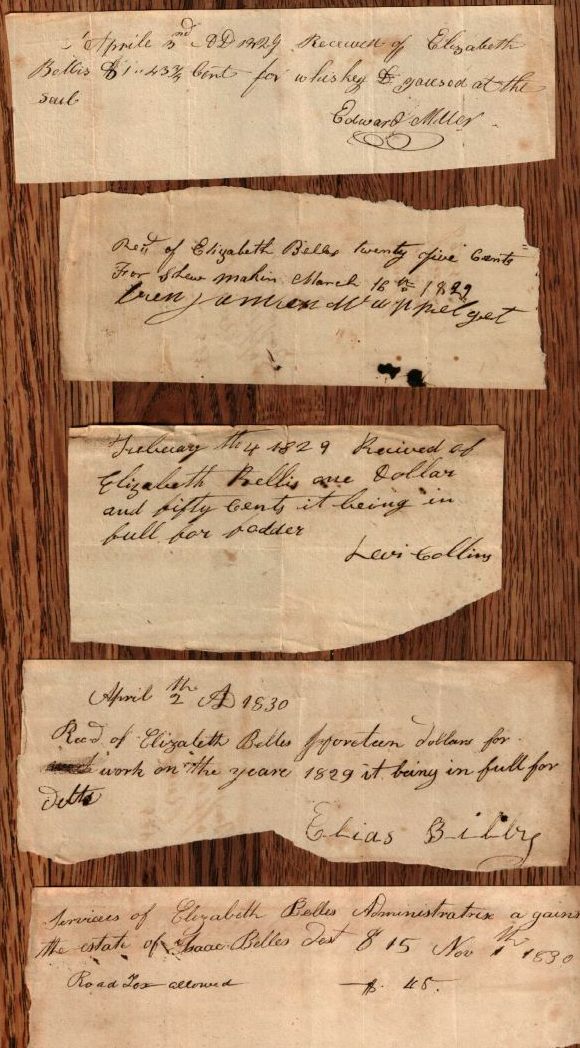 Aprile 3nd AD 1829 Received of Elizabeth
Bellis $1..43¾ Cent for whiskey & yousod at the
sail
Edward Miller
Recd of Elizabeth Belles twenty five Cents
For shew makin March 16th 1829
Levi Collins
Februay th4 1829 Recived of
Elizabeth Bellis one Dollar
and fifty Cents it being in
full for fodder
April 2th AD 1830
Recd of Elizabeth Belles foreteen dollars for
work on the yeare 1829 it being in full for
Detts
Elias Bilby
Services of Elizabeth Belles Administratrix a gains
the estate of Isaac Belles Dest $15 Nov 1th 1830
Road Tax allowed $.45.